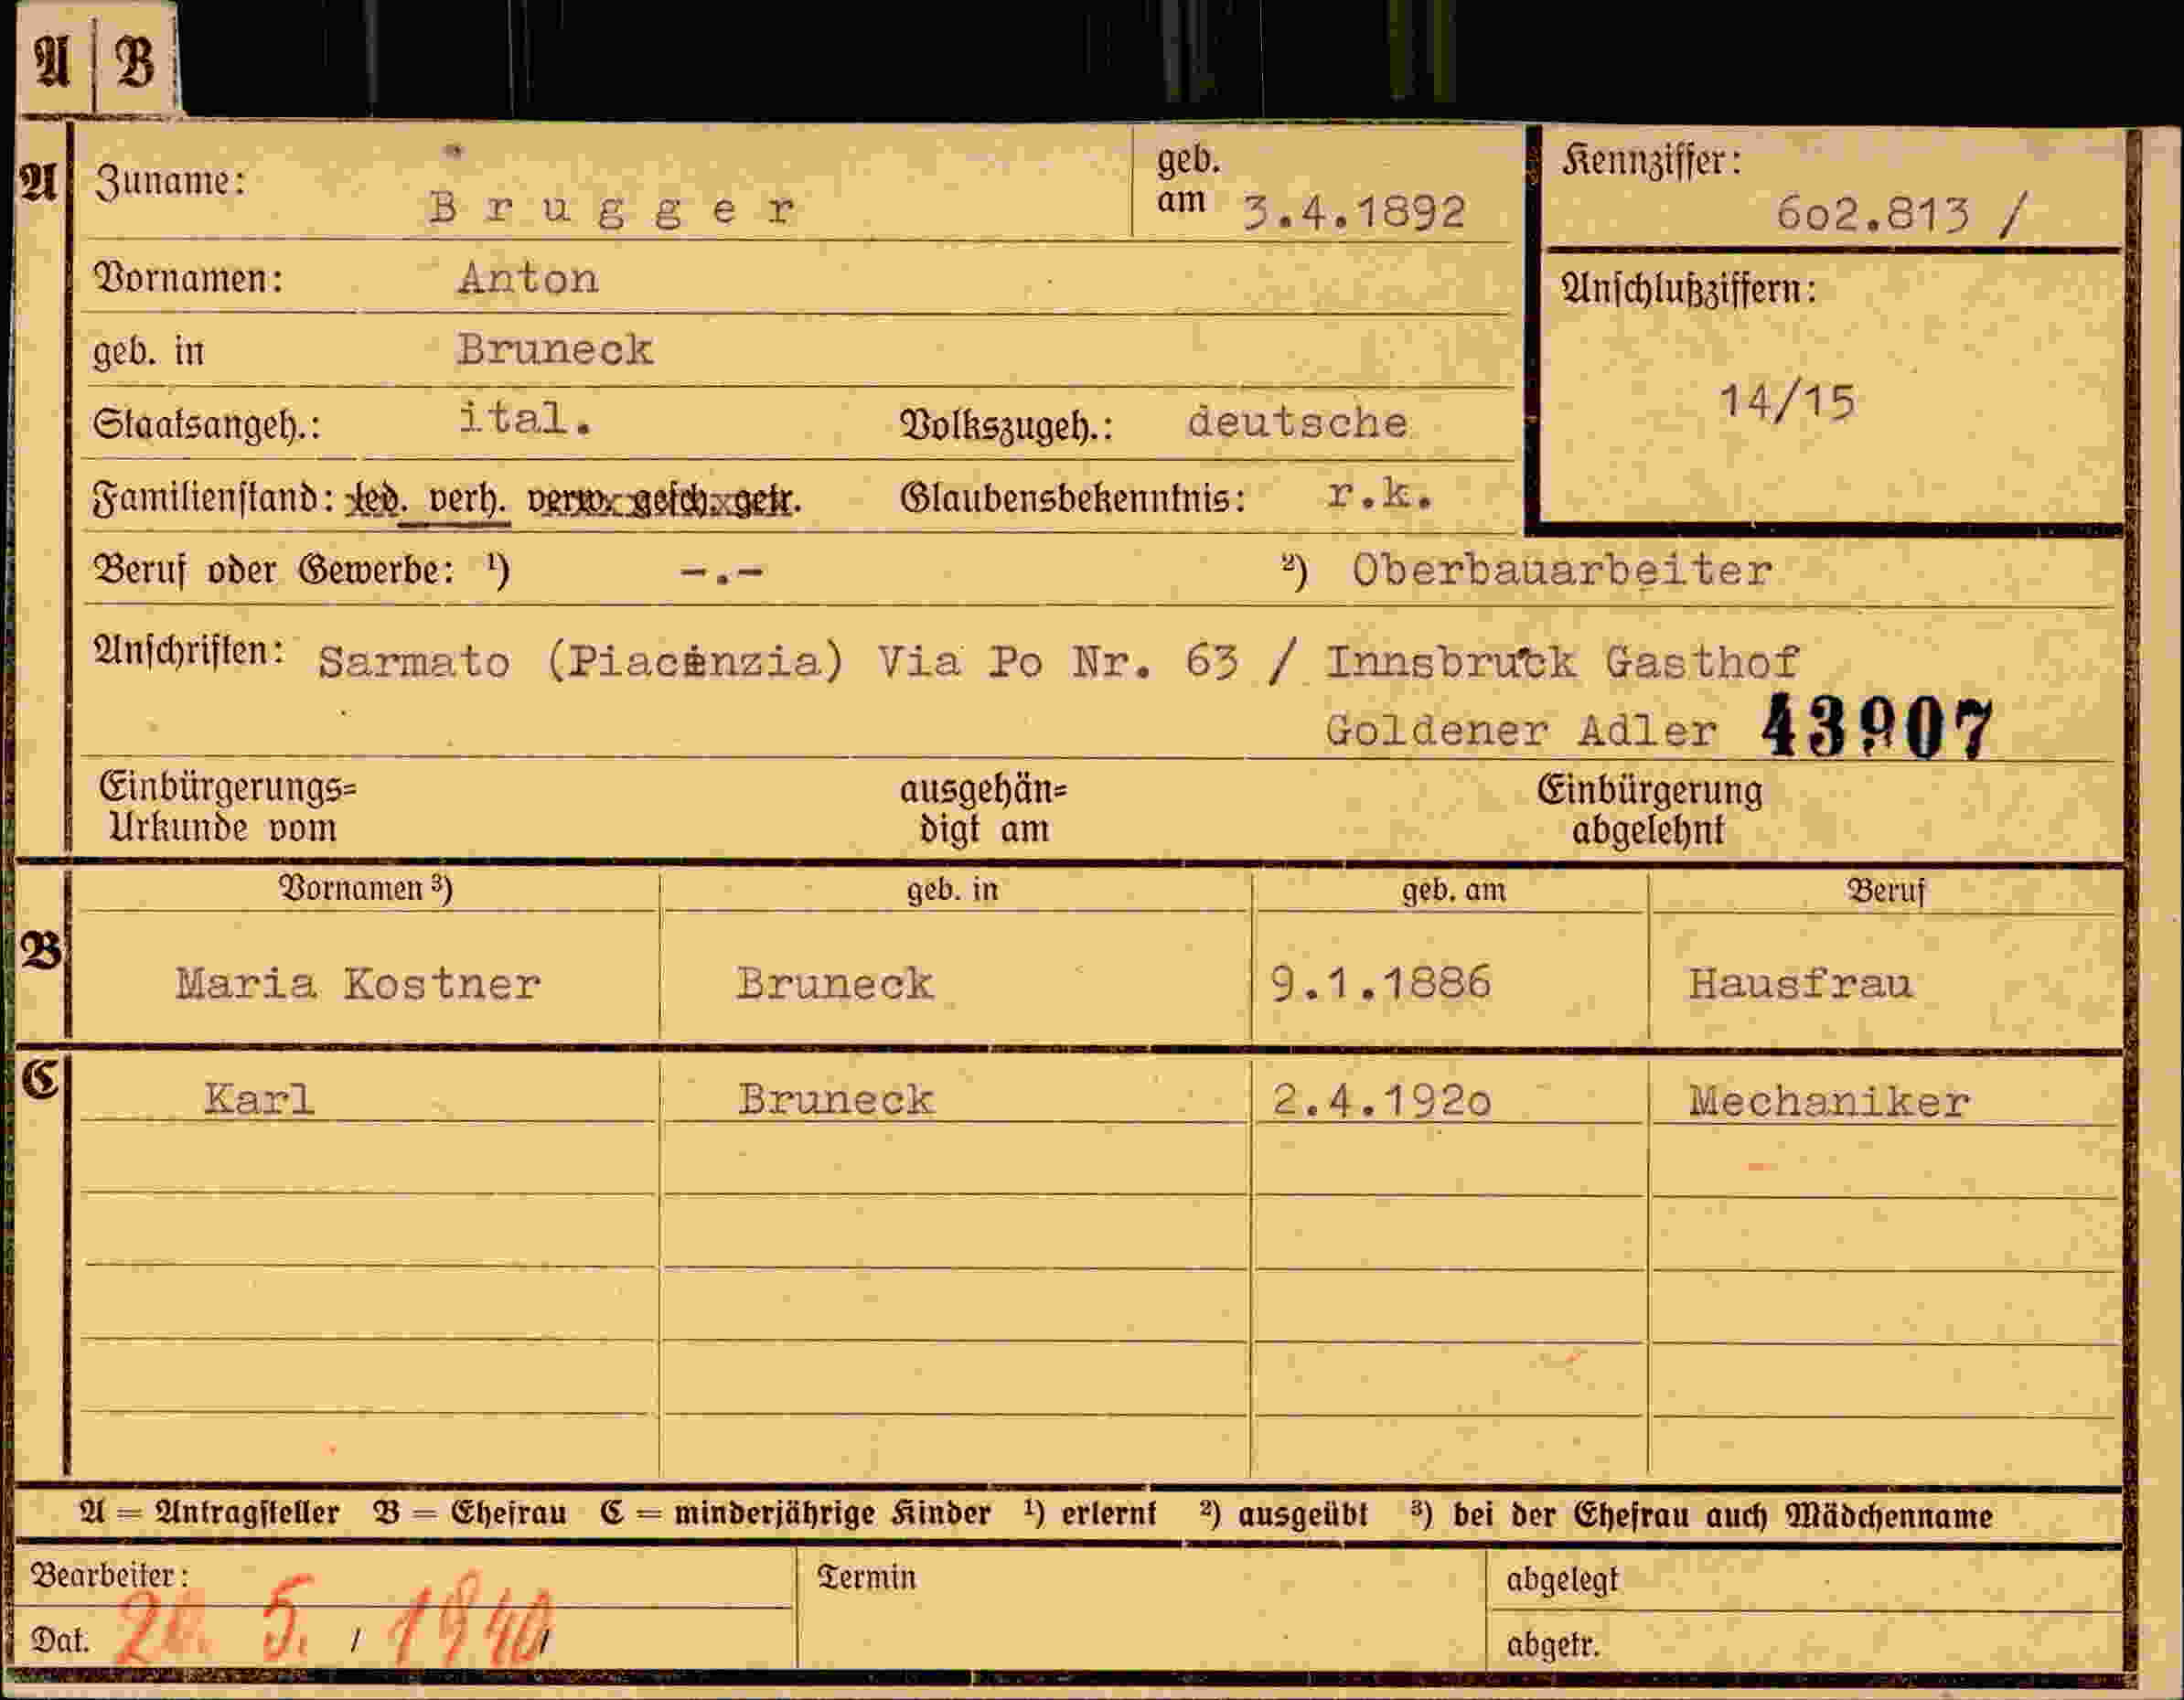 A | B
A Zuname: B r u g g e r geb. am 3.4.1892 Kennziffer: 6o2.813 /
Vornamen: Anton Anschlußziffern:
geb. in Bruneck 14/15
Staatsangeh.: ital. Volkszugeh.: deutsche
Familienstand: led. verh. verw. gesch. getr. Glaubensbekenntnis: r.k.
Beruf oder Gewerbe: ¹) -.- ²) Oberbauarbeiter
Anschriften: Sarmato (Piacenzia) Via Po Nr. 63 / Innsbruck Gasthof
Goldener Adler 43907
Einbürgerungs= ausgehän= Einbürgerung
Urkunde vom digt am abgelehnt
Vornamen ³) geb. in geb. am Beruf
B Maria Kostner Bruneck 9.1.1886 Hausfrau
C Karl Bruneck 2.4.192o Mechaniker
A = Antragsteller B = Ehefrau C = minderjährige Kinder ¹) erlernt ²) ausgeübt ³) bei der Ehefrau auch Mädchenname
Bearbeiter: Termin abgelegt
Dat. 5. / 1940/ abgetr.